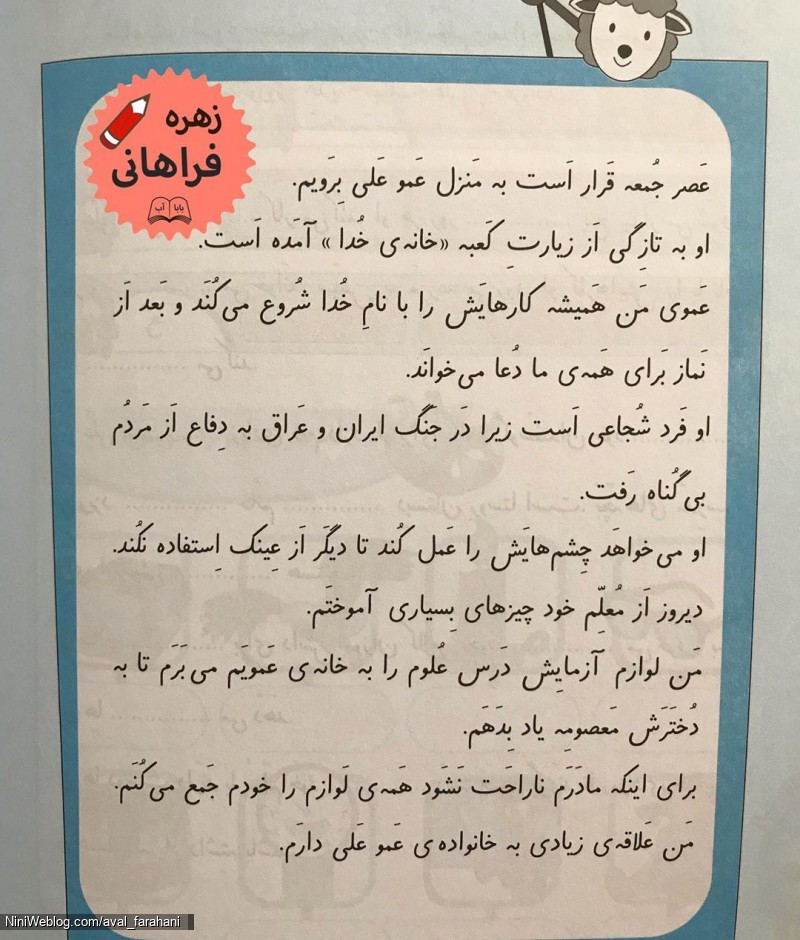 زهره
فراهانی
بابا آب
عَصر جُمعه قَرار اَست به مَنزل عَمو عَلی بِرَویم.
او به تازِگی اَز زیارتِ کَعبه «خانه‌ی خُدا » آمَده اَست.
عَموی مَن هَمیشه کارهایَش را با نامِ خُدا شُروع می‌کُنَد و بَعد اَز
نَماز بَرای هَمه‌ی ما دُعا می‌خوانَد.
او فَرد شُجاعی اَست زیرا دَر جَنگ ایران و عَراق به دِفاع اَز مَردُم
بی‌گُناه رَفت.
او می‌خواهَد چِشم‌هایَش را عَمل کُند تا دیگَر اَز عِینک اِستفاده نکُند.
دیروز اَز مُعلِّم خود چیزهای بِسیاری آموختَم.
مَن لوازم آزمایِش دَرس عُلوم را به خانه‌ی عَمویَم می‌بَرَم تا به
دُختَرَش مَعصومِه یاد بِدَهَم.
برای اینکه مادَرَم ناراحَت نَشَود هَمه‌ی لَوازم را خودم جَمع می‌کُنَم.
مَن عَلاقه‌ی زیادی به خانواده‌ی عَمو عَلی دارَم.
NiniWeblog.com/aval_farahani